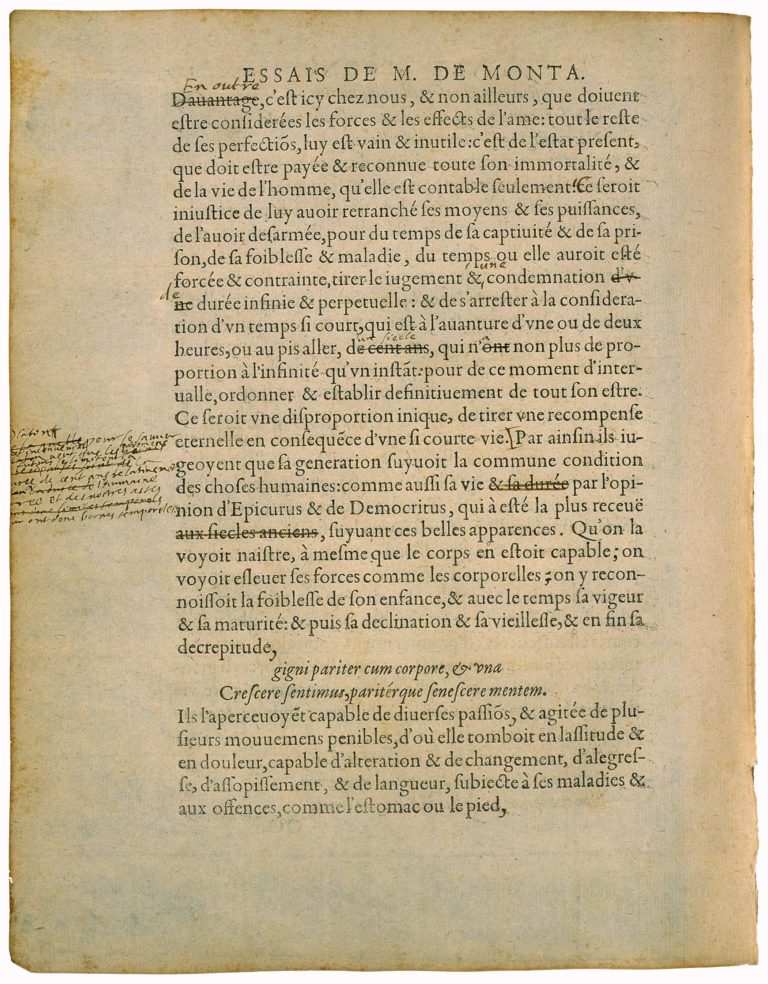 ESSAIS DE M. DE MONTA.
En outre
Dauantage, c'eſt icy chez nous, & non ailleurs, que doiuent
eſtre conſiderées les forces & les effects de l'ame: tout le reſte
de ſes perfectiõs, luy eſt vain & inutile: c'eſt de l'eſtat preſent,
que doit eſtre payée & reconnue toute ſon immortalité, &
de la vie de l'homme, qu'elle eſt contable ſeulement: Ce ſeroit
iniuſtice de luy auoir retranché ſes moyens & ſes puiſſances,
de l'auoir deſarmée, pour du temps de ſa captiuité & de ſa pri-
ſon, de ſa foibleſſe & maladie, du temps ou elle auroit eſté
d'une
forcée & contrainte, tirer le iugement & condemnation d'v-
de
ne durée infinie & perpetuelle: & de s'arreſter à la conſidera-
tion d'vn temps ſi court, qui eſt à l'auanture d'vne ou de deux
un siecle
heures, ou au pis aller, de cent ans, qui n'ont non plus de pro-
portion à l'infinité qu'vn inſtãt: pour de ce moment d'inter-
ualle, ordonner & eſtablir definitiuement de tout ſon eſtre.
Ce ſeroit vne diſproportion inique, de tirer vne recompenſe
eternelle en conſequẽce d'vne ſi courte vie. Par ainſin ils iu-
geoyent que ſa generation ſuyuoit la commune condition
des choſes humaines: comme auſſi ſa vie & ſa durée par l'opi-
nion d'Epicurus & de Democritus, qui à eſté la plus receuë
aux ſiecles anciens, ſuyuant ces belles apparences. Qu'on la
voyoit naiſtre, à meſme que le corps en eſtoit capable; on
voyoit eſleuer ſes forces comme les corporelles; on y recon-
noiſſoit la foibleſſe de ſon enfance, & auec le temps ſa vigeur
& ſa maturité: & puis ſa declination & ſa vieilleſſe, & en fin ſa
decrepitude,
gigni pariter cum corpore, & vna
Creſcere ſentimus, paritérque ſeneſcere mentem.
Ils l'aperceuoyẽt capable de diuerſes paſſiõs, & agitée de plu-
ſieurs mouuemens penibles, d'où elle tomboit en laſſitude &
en douleur, capable d'alteration & de changement, d'alegreſ-
ſe, d'aſſopiſſement, & de langueur, ſubiecte à ſes maladies &
aux offences, comme l'eſtomac ou le pied,